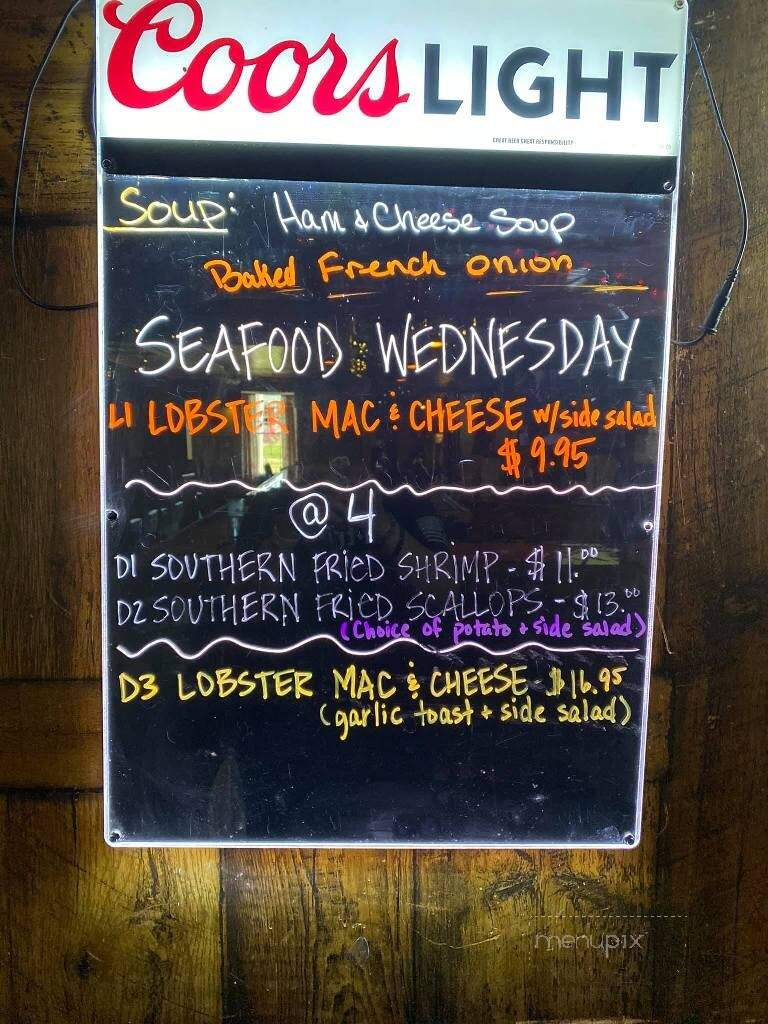 Coors LIGHT
GREAT BEER GREAT RESPONSIBILITY
Soup: Ham & Cheese Soup
Baked French onion
SEAFOOD WEDNESDAY
L1 LOBSTER MAC & CHEESE w/side salad
$9.95
@ 4
D1 SOUTHERN FRIED SHRIMP - $11.00
D2 SOUTHERN FRIED SCALLOPS - $13.00
(Choice of potato + side salad)
D3 LOBSTER MAC & CHEESE - $16.95
(garlic toast + side salad)
menupix